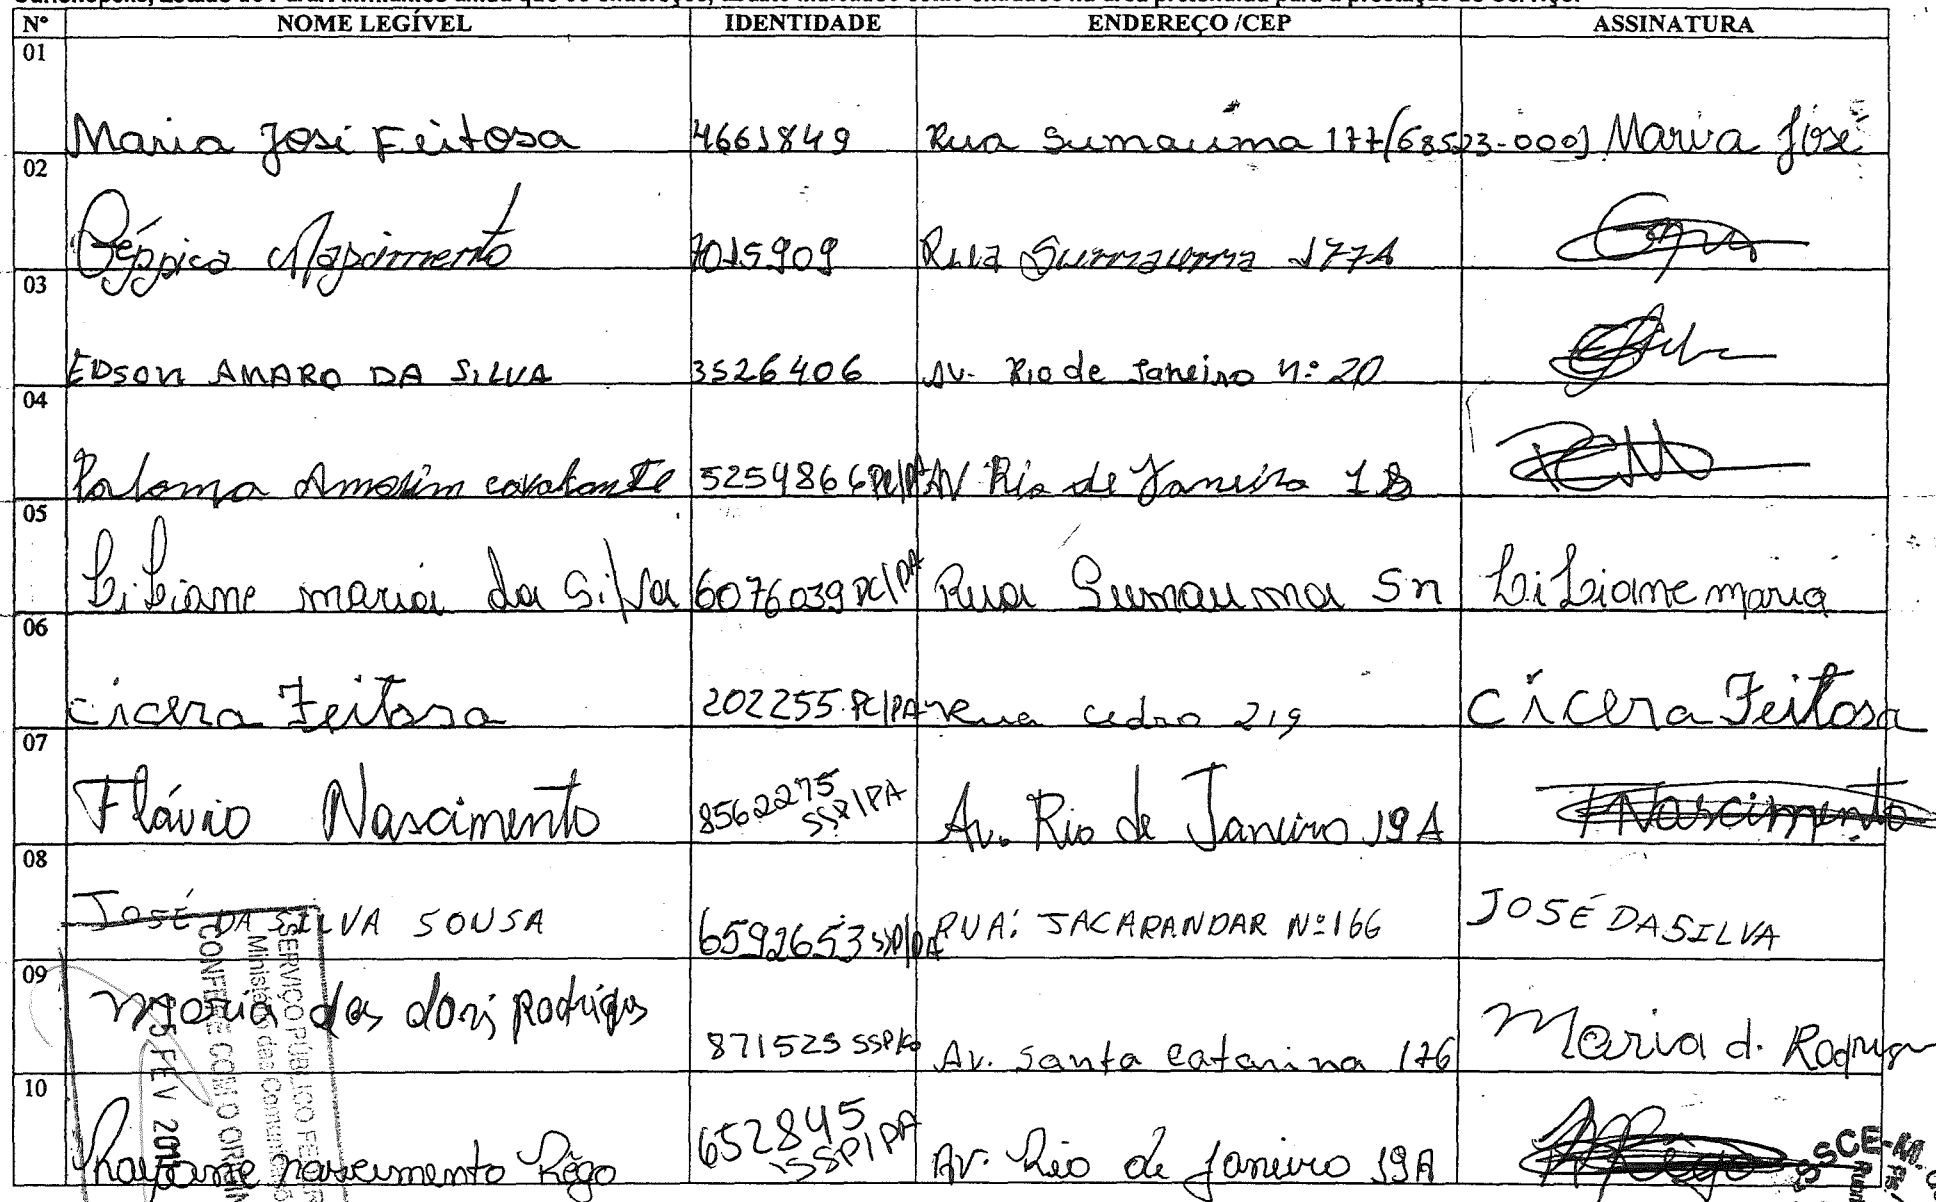 Nº NOME LEGÍVEL IDENTIDADE ENDEREÇO /CEP ASSINATURA
01
Maria José Feitosa 4661849 Rua Sumauma 177(68523-000) Maria José
02
Nascimento 7015909 Rua Sumauma 177A
03
EDSON AMARO DA SILVA 3526406 Av. Rio de Janeiro nº 20
04
Paloma Amorim cavalcante 5259866 PC/PA AV Rio de Janeiro 18
05
Libiane maria da Silva 6076039 PC/PA Rua Sumauma Sn Libiane maria
06
Cícera Feitosa 202255 PC/PA Rua cedro 219 Cícera Feitosa
07
Flávio Nascimento 8562275 SSP/PA Av. Rio de Janeiro 19A Nascimento
08
JOSÉ DA SILVA SOUSA 6592653 SSP/PA RUA: JACARANDAR Nº166 JOSÉ DA SILVA
09
Maria das dores Rodrigues 871525 Av. Santa Catarina 176 Maria d. Rodrigues
10
nascimento Rêgo 652845 SSP/PA Av. Rio de Janeiro 19A
SERVIÇO PÚBLICO
Ministério das
CONFERE COM O
FEV